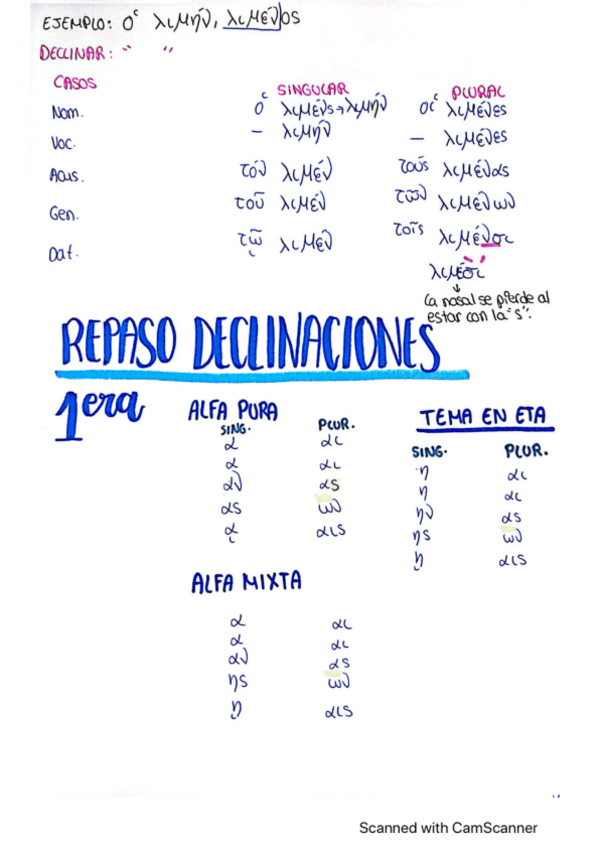 EJEMPLO: ὁ λιμήν, λιμένος
DECLINAR: " "
CASOS SINGULAR PLURAL
Nom. ὁ λιμένς→λιμήν οἱ λιμένες
Voc. – λιμήν – λιμένες
Acus. τόν λιμέν τούς λιμένας
Gen. τοῦ λιμέν τῶν λιμένων
Dat. τῷ λιμέν τοῖς λιμένσι
λιμέσι
↓
la nasal se pierde al
estar con la "s".
REPASO DECLINACIONES
1era ALFA PURA TEMA EN ETA
SING. PLUR. SING. PLUR.
α αι η αι
α αι η αι
αν ας ην ας
ας ων ης ων
ᾳ αις ῃ αις
ALFA MIXTA
α αι
α αι
αν ας
ης ων
ῃ αις
Scanned with CamScanner